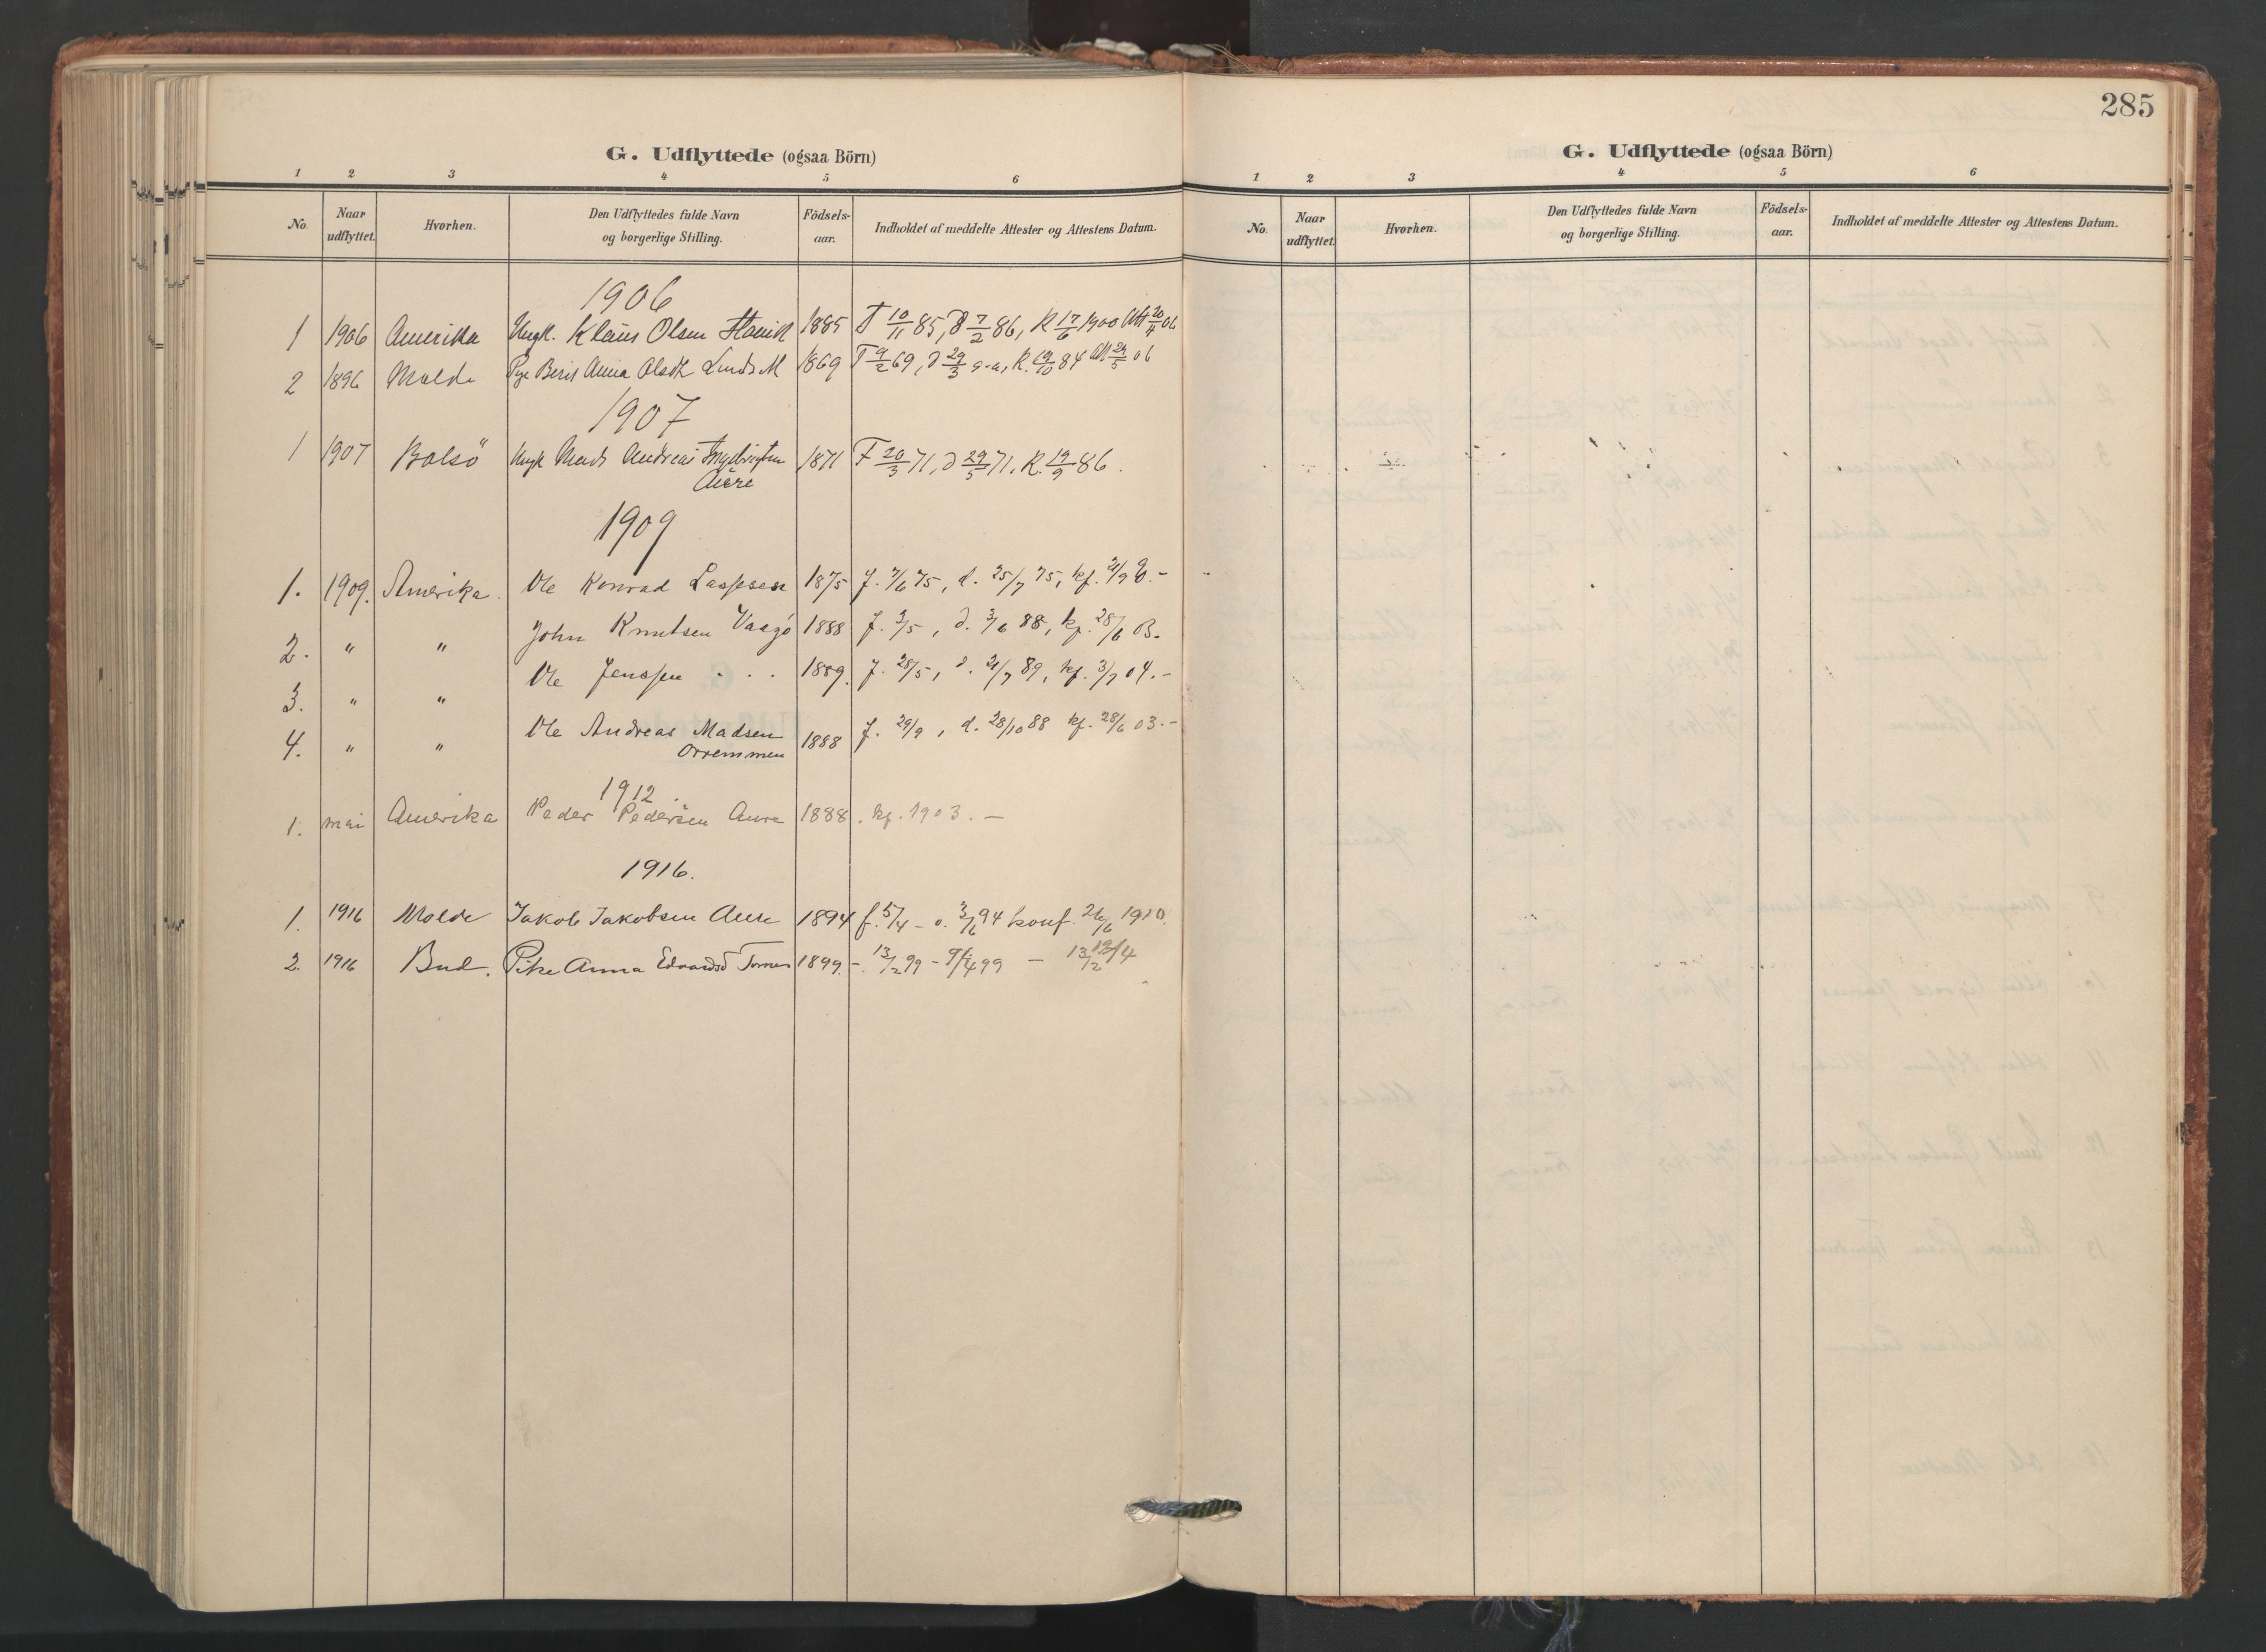 G. Udflyttede (ogsaa Börn)
1 2 3 4 5 6
No. Naar udflyttet. Hvorhen. Den Udflyttedes fulde Navn og borgerlige Stilling. Födsels-aar. Indholdet af meddelte Attester og Attestens Datum.
1906
1 1906 Amerika Ungk. Klaus Olsen 1885 F 10/11 85, D 7/2 86, K 17/6 1900 Att 20/4 06
2 1896 Molde Pge Berit Anna Olsdt. 1869 F 9/2 69, D 29/3 s.a., K. 19/10 84 Att 29/5 06
1907
1 1907 Bolsö Ungk Mads Andreas 1871 F 20/3 71, D 29/5 71, K. 19/9 86.
Aure
1909
1. 1909. Amerika. Ole Konrad Lassesen 1875 f. 7/6 75, d. 25/7 75, kf.
2. " " John Knutsen Vaagø 1888 f. 3/5, d. 3/6 88, kf. 28/6 03.
3. " " Ole Jenssen . . . 1889. f. 28/5, d. 21/7 89, kf. 3/7 04.-
4. " " Ole Andreas Madsen 1888 f. 29/9, d. 28/10 88 kf. 28/6 03.-
Orremmen
1912.
1. mai Amerika Peder Pedersen Aure 1888. kf. 1903. —
1916.
1. 1916 Molde Jakob Jakobsen Aure 1894 f. 5/4 - d. 3/6 94 konf. 26/6 1910.
2. 1916 Bud. Pike Anna Edvardsd Tornes 1899. - 13/2 99 - 9/4 99 —
285
G. Udflyttede (ogsaa Börn)
1 2 3 4 5 6
No. Naar udflyttet. Hvorhen. Den Udflyttedes fulde Navn og borgerlige Stilling. Födsels-aar. Indholdet af meddelte Attester og Attestens Datum.